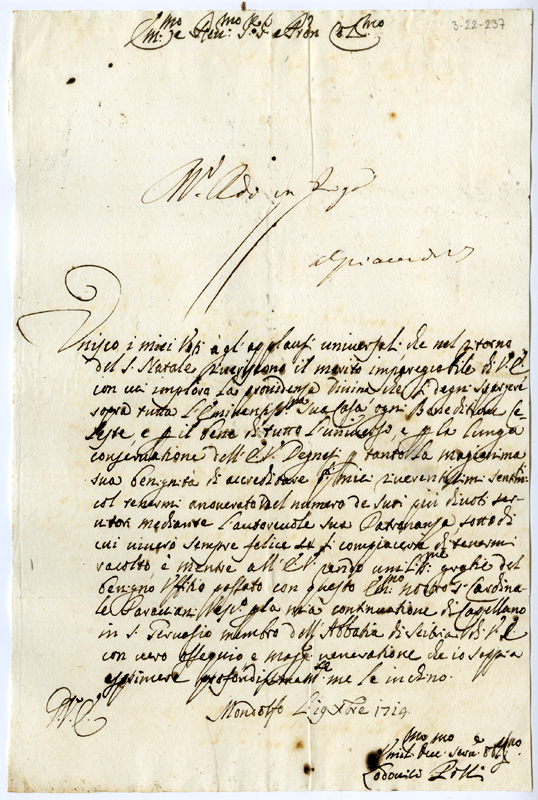 3-22-237
Em.mo e Rev.mo Sig.r Sig.r e Pron Col.mo
Unisco i miei Voti a gl'applausi universali che nel ritorno
del S. Natale riveriscono il merito impareggiabile di V. E.
con cui imploro la providenza Divina che si degni spargere
sopra tutta l'Eminentiss.ma Sua Casa ogni Benedition Ce-
leste, e p il bene di tutto l'universo e p la lunga
conservatione dell'E.V. Degnesi p tanto la magnanima
sua benignità di accreditare q.ti miei riverentissimi senti
col tenermi annoverato nel numero de suoi più divoti ser-
vitori mediante l'autorevole sua Padronanza sotto di
cui viverò sempre felice se si compiacerà di tenermi
racolto, e mentre all'E.V. rendo umil.me grazie del
benigno Uffitio passato con questo Em.mo nostro S. Cardina-
le Paracciani Vesc.o p la mia continuatione di Capellano
in S. Gervasio membro dell'Abbatia di Sitria di V. E.
con vero ossequio e magg. veneratione che io sappia
esprimere profondissimam.te me le inchino.
D. V. E.
Mondolfo li 19 Xbre 1714
Umil.mo Dev.mo Serv.e Obl.mo
Lodovico Polli